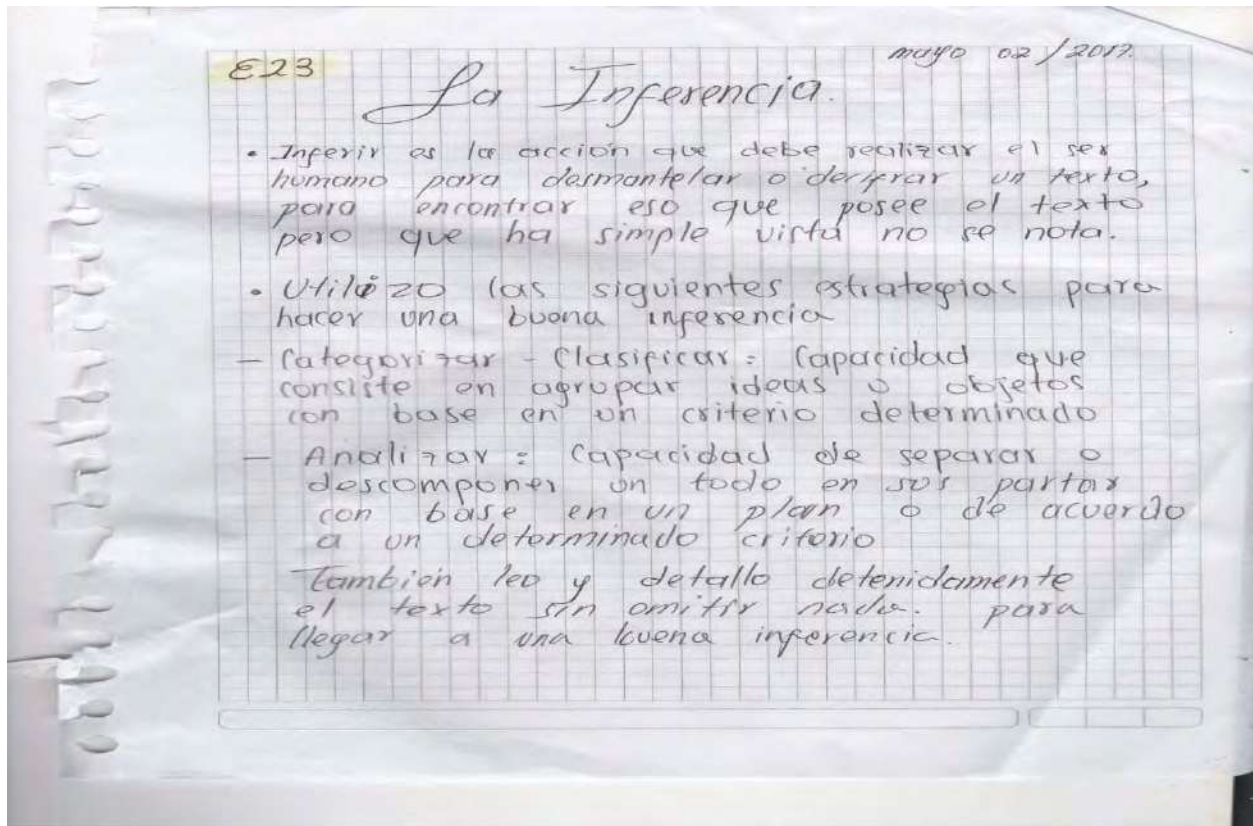 mayo 02/2017.
E23
La Inferencia.
• Inferir es la acción que debe realizar el ser
humano para desmantelar o decifrar un texto,
para encontrar eso que posee el texto
pero que ha simple vista no se nota.
• Utilizo las siguientes estrategias para
hacer una buena inferencia
- Categorizar - Clasificar: Capacidad que
consiste en agrupar ideas o objetos
con base en un criterio determinado
- Analizar: Capacidad de separar o
descomponer un todo en sus partes
con base en un plan o de acuerdo
a un determinado criterio
Tambien leo y detallo detenidamente
el texto sin omitir nada. para
llegar a una buena inferencia.